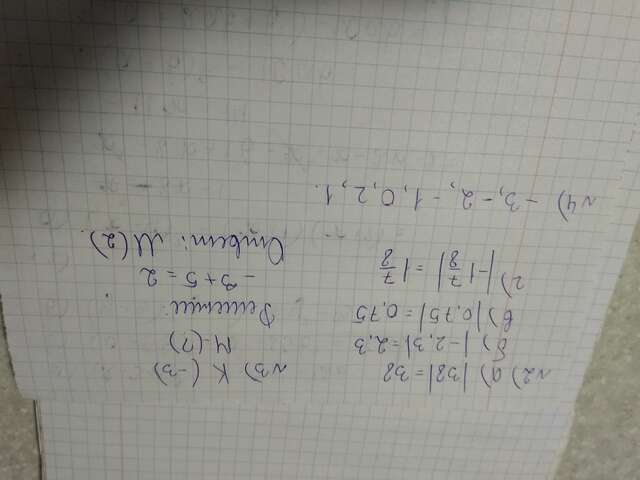 №2) а) |38| = 38
б) |-2,3| = 2,3
в) |0,75| = 0,75
г) |-1 7/8| = 1 7/8
№3) К (-3)
М - (?)
Решение
-3 + 5 = 2
Ответ: М (2).
№4) -3, -2, -1, 0, 2, 1.